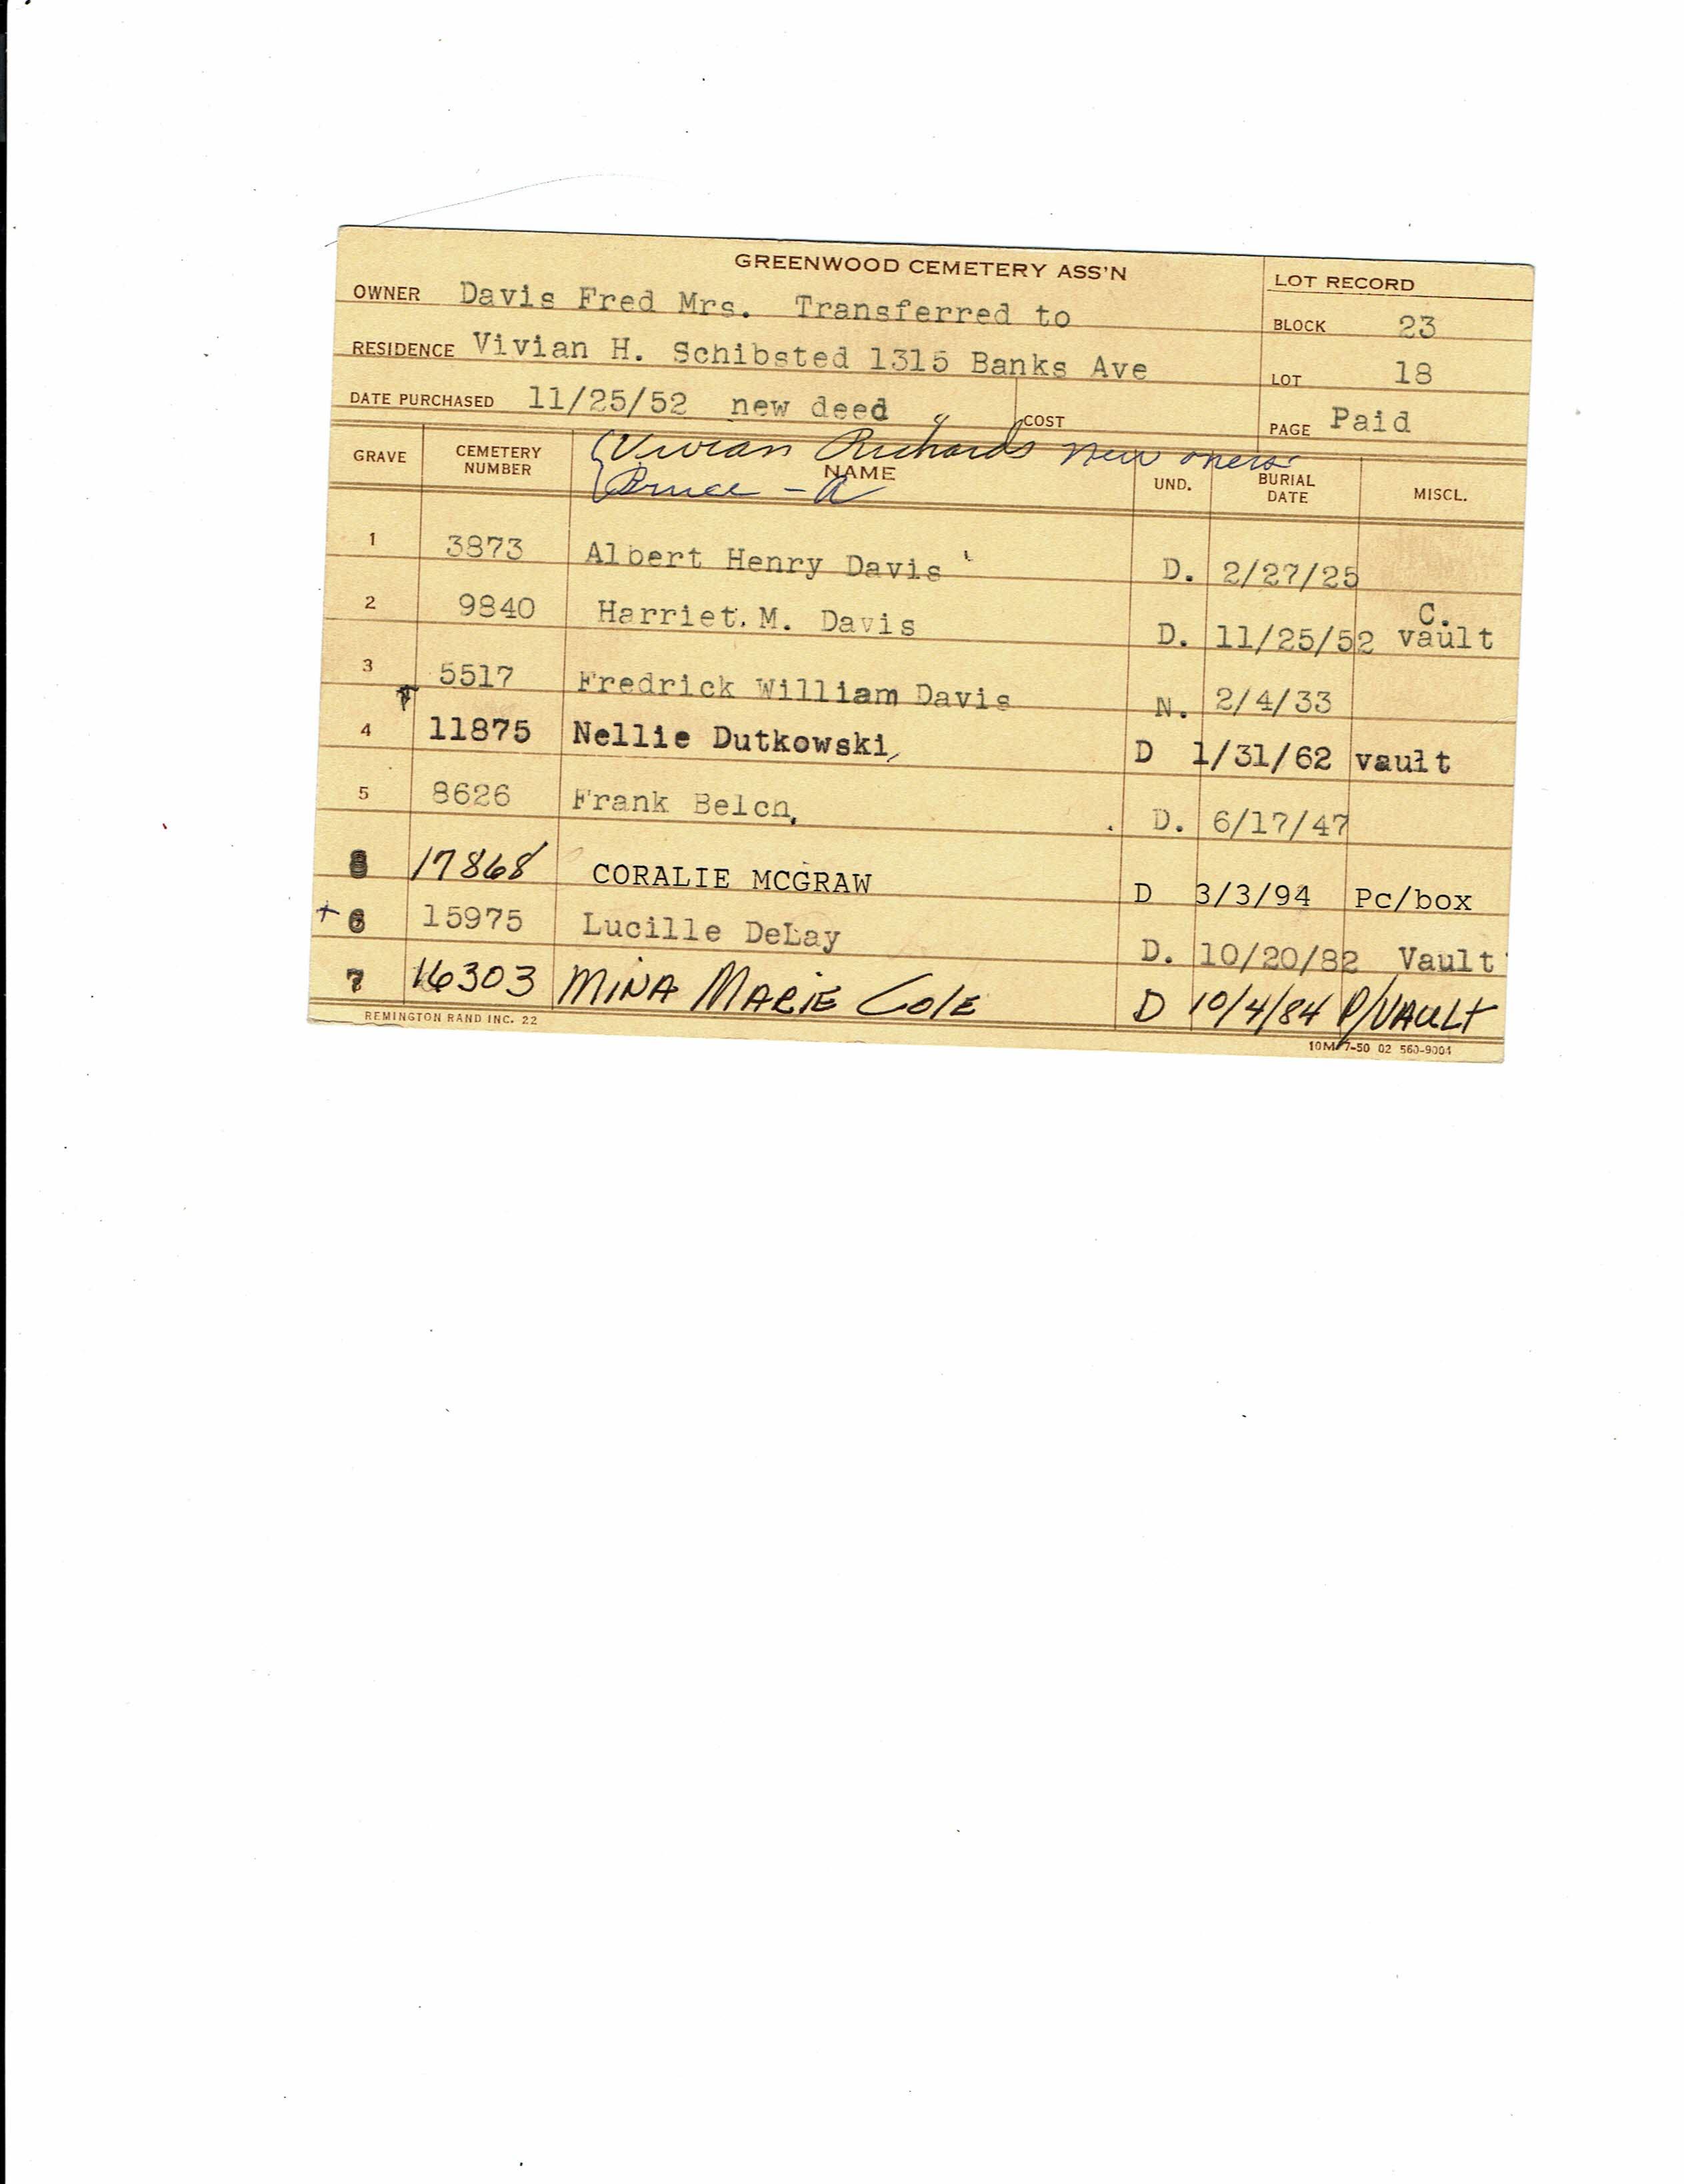 GREENWOOD CEMETERY ASS'N
LOT RECORD
OWNER Davis Fred Mrs. Transferred to
BLOCK 23
RESIDENCE Vivian H. Schibsted 1315 Banks Ave
LOT 18
DATE PURCHASED 11/25/52 new deed COST
PAGE Paid
Vivian Richards New oners
Bruce - a
GRAVE CEMETERY NUMBER NAME UND. BURIAL DATE MISCL.
1 3873 Albert Henry Davis D. 2/27/25
2 9840 Harriet. M. Davis D. 11/25/52 C. vault
3 5517 Fredrick William Davis N. 2/4/33
4 11875 Nellie Dutkowski, D 1/31/62 vault
5 8626 Frank Belch, D. 6/17/47
8 17868 CORALIE MCGRAW D 3/3/94 Pc/box
+ 6 15975 Lucille DeLay D. 10/20/82 Vault
7 16303 MINA MARIE COlE D 10/4/84 P/VAULT
REMINGTON RAND INC. 22
10M 7-50 02 560-9004